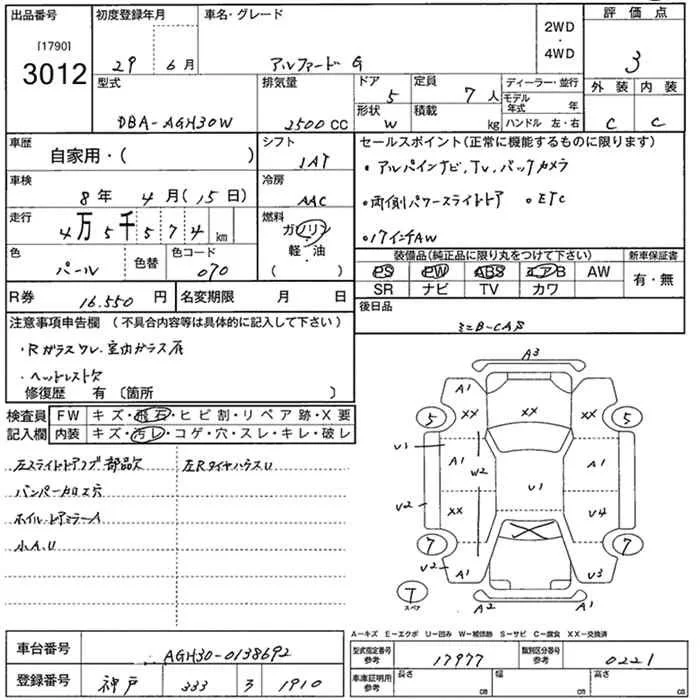 出品番号 初度登録年月 車名・グレード 2WD・4WD 評価点
[1790]
3012 29 6月 アルファード G 3
型式 排気量 ドア 5 定員 7人 ディーラー・並行 外装 内装
DBA-AGH30W 2500CC 形状 W 積載 kg モデル年式 年 ハンドル 左・右 C C
車歴 自家用・( ) シフト 1AT セールスポイント(正常に機能するものに限ります)
・アルパインナビ, TV, バックカメラ
車検 8年 4月(15日) 冷房 AAC
・両側パワースライドドア ・ETC
走行 4万5千574km 燃料 ガソリン・軽・油 ( )
・17インチAW
色 パール 色替 色コード 070
装備品(純正品に限り丸をつけて下さい) 新車保証書
PS PW ABS エアB AW 有・無
SR ナビ TV カワ
R券 16.550円 名変期限 月 日
後日品
ミニB-CAS
注意事項申告欄 (不具合内容等は具体的に記入して下さい)
・Rガラスワレ. 室内ガラス
・ヘッドレスト欠
修復歴 有 〔箇所 〕
検査員記入欄 FW キズ・飛石・ヒビ割・リペア跡・X要
内装 キズ・汚レ・コゲ・穴・スレ・キレ・破レ
左スライドドア 部品欠 左RタイヤハウスU
バンパー 穴
ホイル・ドアミラーA
小A.U
A3
A1 XX XX XX A1
5 5
V1 A1 W2 A1
U1
V2 XX V4
7 7
V2 A1 V3
T スペア A2 A1
A-キズ E-エクボ U-凹み W-補修跡 S-サビ C-腐食 XX-交換済
車台番号 AGH30-0138692 型式指定番号 参考 17977 類別区分番号 参考 0221
登録番号 神戸 333 ろ 1910 車庫証明用 参考 長さ cm 幅 cm 高さ cm